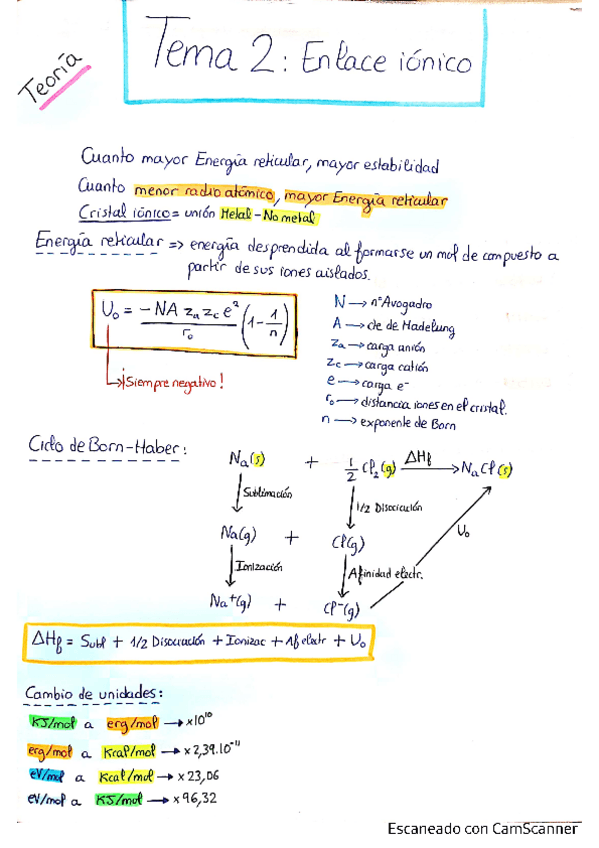 Teoría
Tema 2: Enlace iónico
Cuanto mayor Energía reticular, mayor estabilidad
Cuanto menor radio atómico, mayor Energía reticular
Cristal iónico = unión Metal - No metal
Energía reticular => energía desprendida al formarse un mol de compuesto a
partir de sus iones aislados.
U₀ = -NA zₐ z꜀ e² / r₀ (1 - 1/n)
¡Siempre negativo!
N → nº Avogadro
A → cte de Madelung
zₐ → carga anión
z꜀ → carga catión
e → carga e⁻
r₀ → distancia iones en el cristal.
n → exponente de Born
Ciclo de Born-Haber:
Na(s) + 1/2 Cl₂(g) ΔHf → NaCl(s)
Sublimación 1/2 Disociación
Na(g) + Cl(g) U₀
Ionización Afinidad electr.
Na⁺(g) + Cl⁻(g)
ΔHf = Subl + 1/2 Disociación + Ionizac + Af electr + U₀
Cambio de unidades:
KJ/mol a erg/mol → x10¹⁰
erg/mol a Kcal/mol → x 2,39·10⁻¹¹
eV/mol a Kcal/mol → x 23,06
eV/mol a KJ/mol → x 96,32
Escaneado con CamScanner